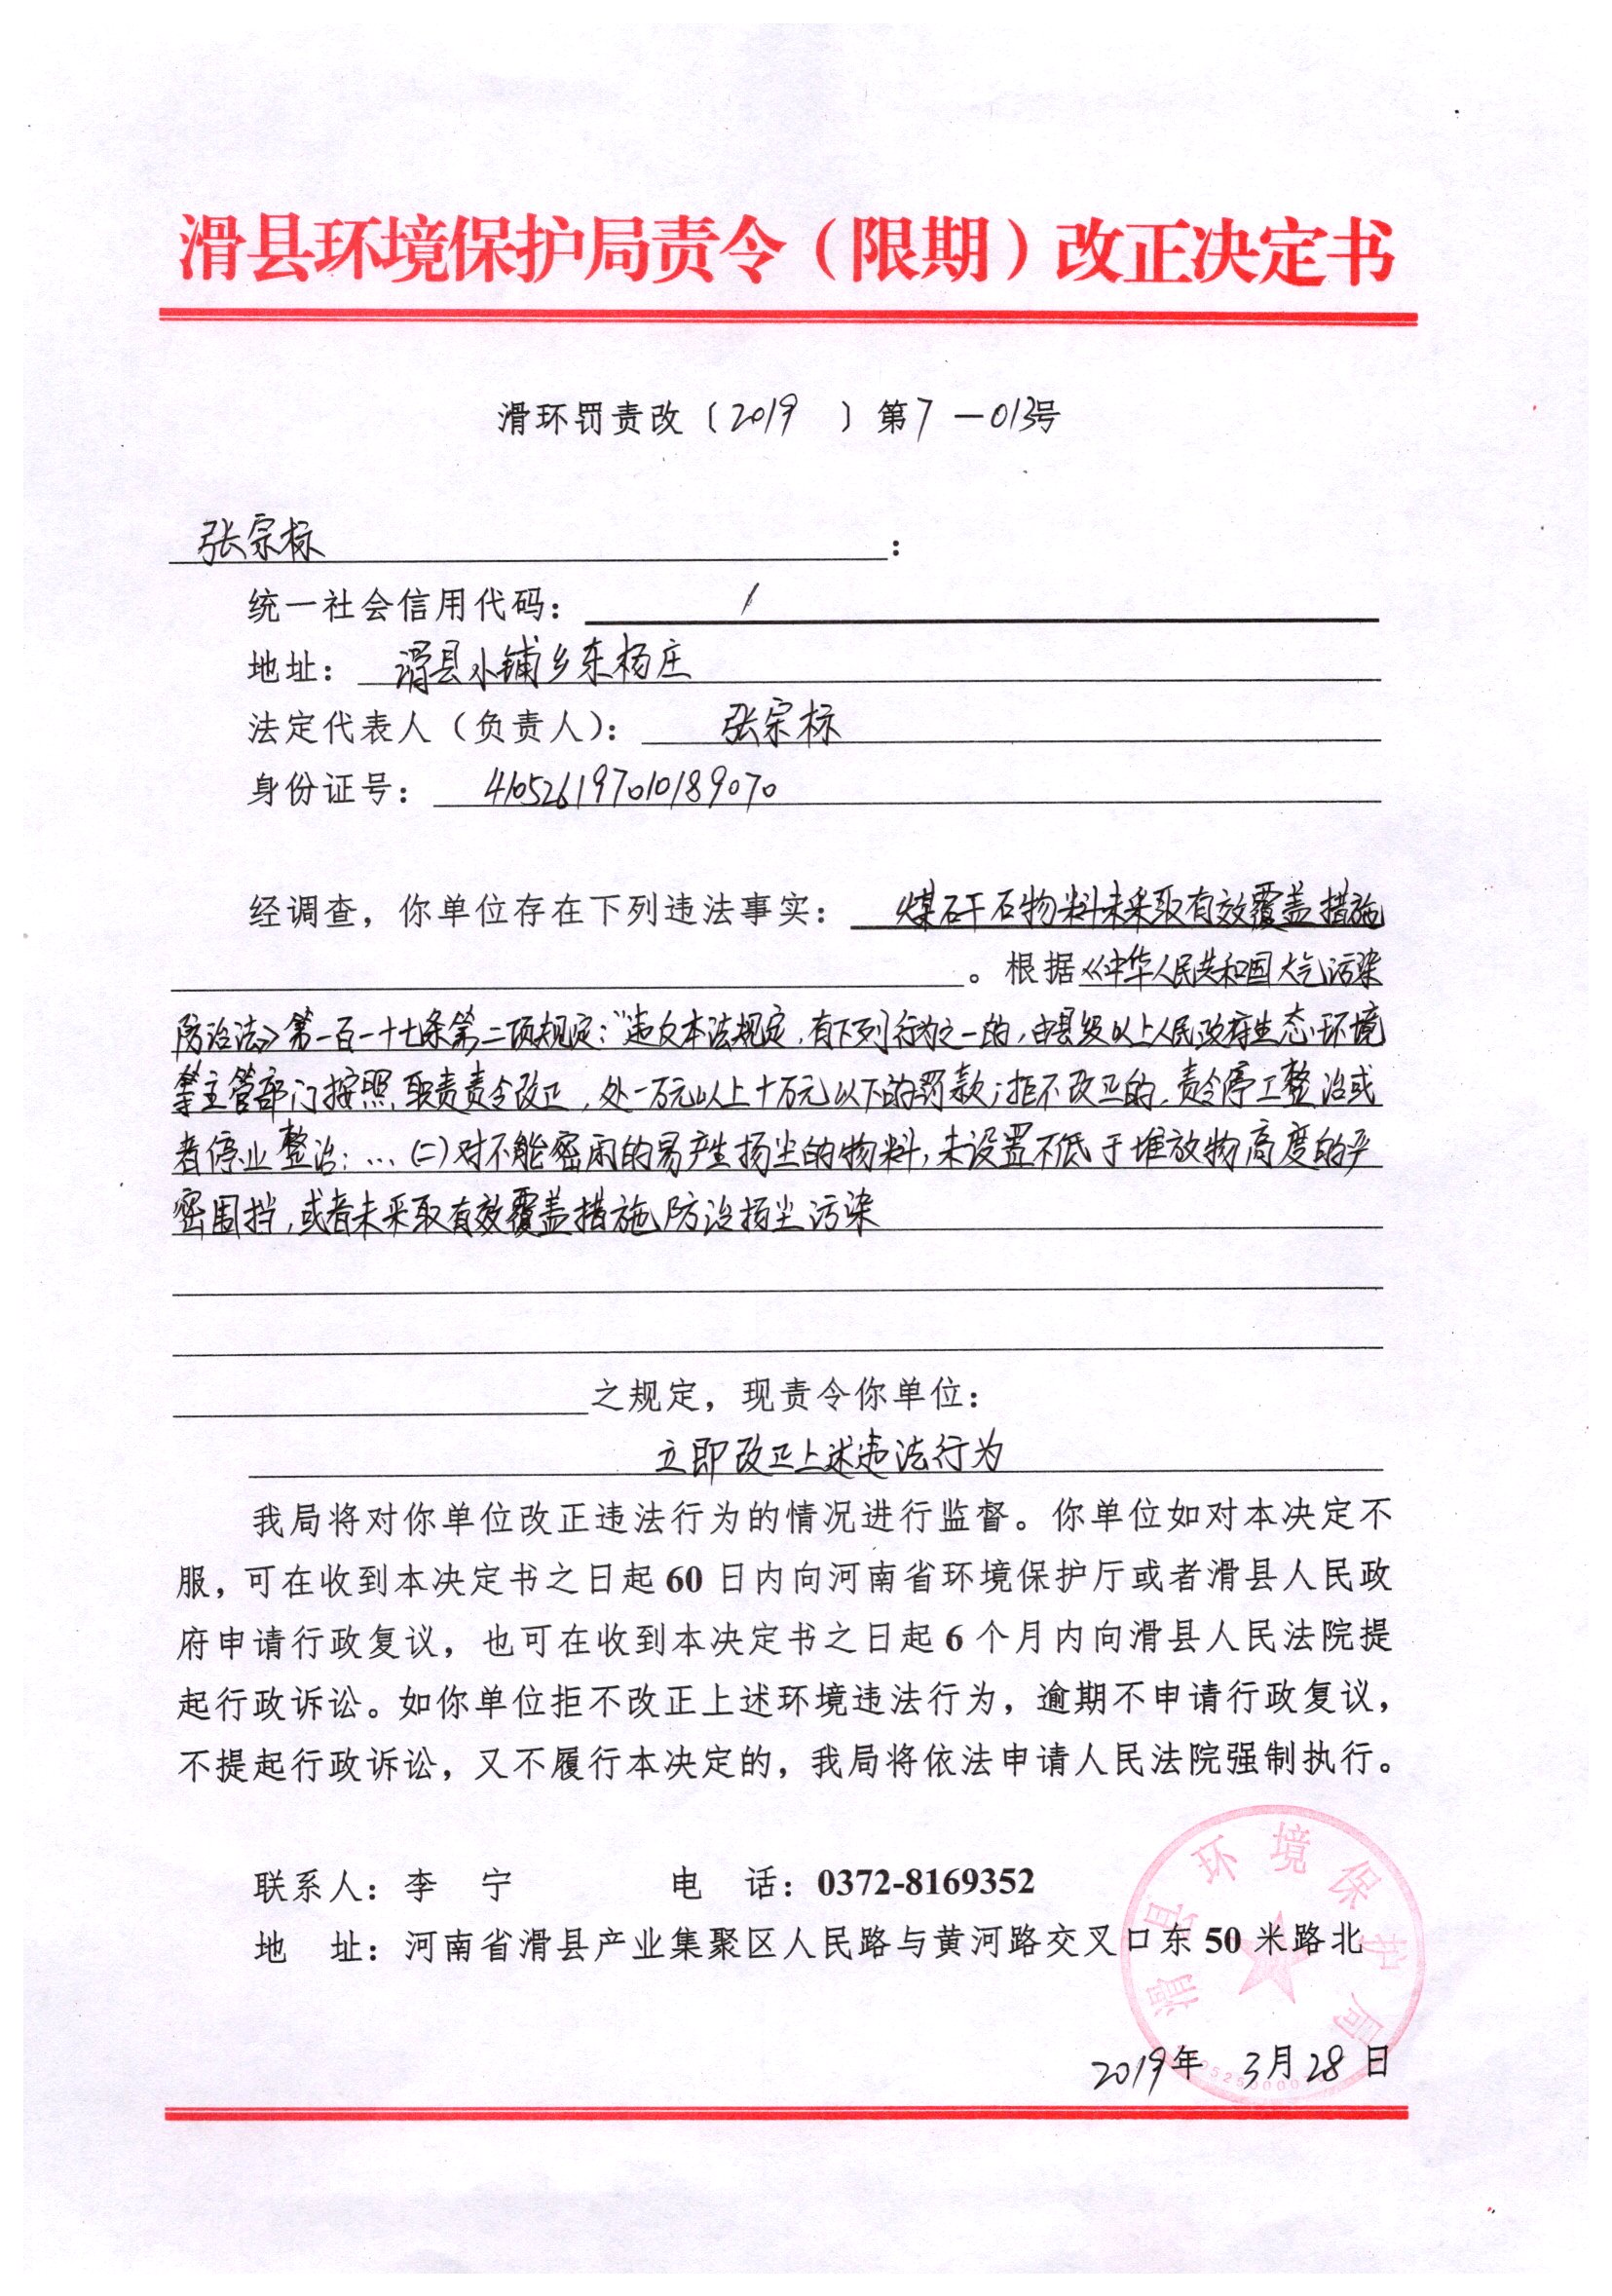 滑县环境保护局责令（限期）改正决定书
滑环罚责改〔2019 〕第7－013号
张宗标：
统一社会信用代码： /
地址： 滑县小铺乡东杨庄
法定代表人（负责人）： 张宗标
身份证号： 410526197010189070
经调查，你单位存在下列违法事实： 煤矸石物料未采取有效覆盖措施
。根据《中华人民共和国大气污染
防治法》第一百一十七条第二项规定：“违反本法规定，有下列行为之一的，由县级以上人民政府生态环境
等主管部门按照职责责令改正，处一万元以上十万元以下的罚款；拒不改正的，责令停工整治或
者停业整治：…（二）对不能密闭的易产生扬尘的物料，未设置不低于堆放物高度的严
密围挡，或者未采取有效覆盖措施防治扬尘污染
之规定，现责令你单位：
立即改正上述违法行为
我局将对你单位改正违法行为的情况进行监督。你单位如对本决定不
服，可在收到本决定书之日起 60 日内向河南省环境保护厅或者滑县人民政
府申请行政复议，也可在收到本决定书之日起 6 个月内向滑县人民法院提
起行政诉讼。如你单位拒不改正上述环境违法行为，逾期不申请行政复议，
不提起行政诉讼，又不履行本决定的，我局将依法申请人民法院强制执行。
联系人：李 宁 电 话：0372-8169352
地 址：河南省滑县产业集聚区人民路与黄河路交叉口东 50 米路北
滑县环境保护局
2019年 3月28日